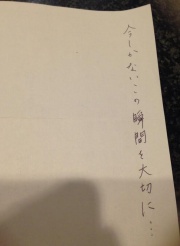 今しかないこの瞬間を大切に…